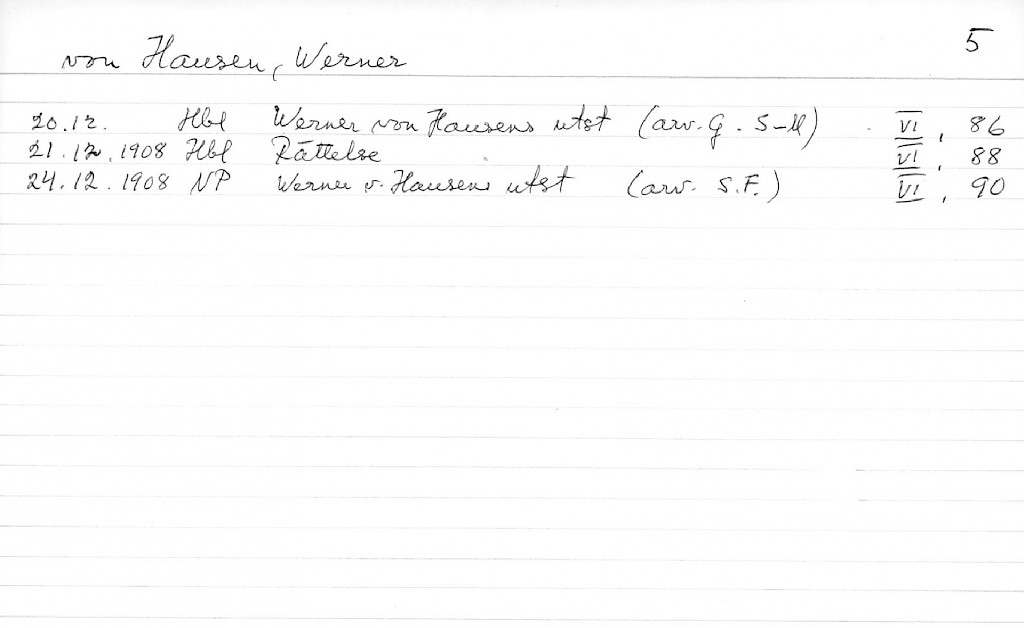 von Hausen, Werner 5
20.12. Hbl Werner von Hausens utst (arv. G. S-ll) VI, 86
21.12.1908 Hbl Rättelse VI, 88
24.12.1908 NP Werner v. Hausens utst (arv. S.F.) VI, 90